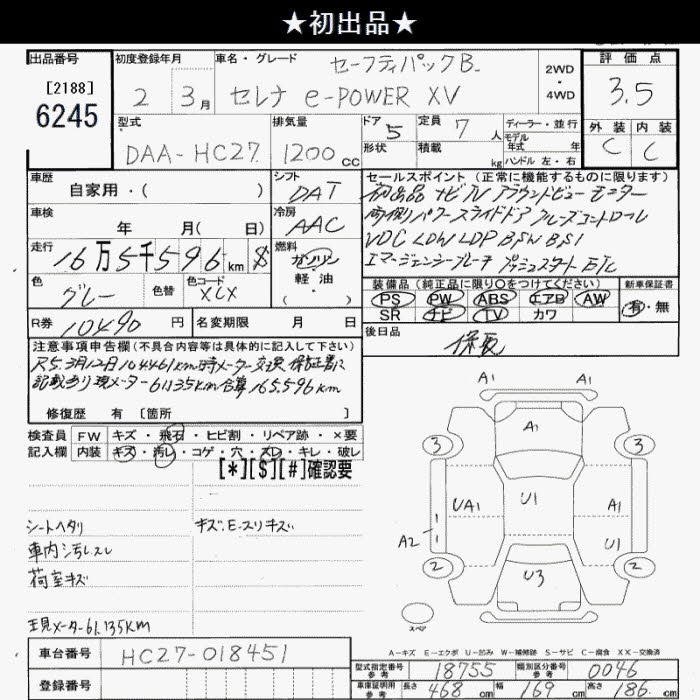 ★初出品★
出品番号 初度登録年月 車名・グレード 評価点
[2188] セーフティパックB 2WD・4WD
6245 2 3月 セレナ e-POWER XV 3.5
型式 排気量 ドア 5 定員 7人 ディーラー・並行 外装 内装
モデル年式 年
形状 積載 kg ハンドル 左・右
DAA-HC27 1200cc C C
車歴 シフト セールスポイント (正常に機能するものに限ります)
自家用・( ) DAT 初出品 ナビ TV アラウンドビューモニター
車検 冷房 両側パワースライドドア クルーズコントロール
年 月( 日) AAC VDC LDW LDP BSW BSI
走行 燃料 エマージェンシーブレーキ プッシュスタート ETC
16万5千596km $ ガソリン
軽・油
・( )
色 色替 色コード 装備品 (純正品に限り○をつけてください) 新車保証書
グレー XCX PS PW ABS エアB AW 有・無
SR ナビ TV カワ
R券 10490円 名変期限 月 日 後日品
保 取
注意事項申告欄(不具合内容等は具体的に記入して下さい)
R5.3月12日104461km時メーター交換 保証書に
記載あり現メーター61135km合算165,596km
修復歴 有 [箇所 ]
検査員 FW キズ・飛石・ヒビ割・リペア跡・×要
記入欄 内装 キズ・汚レ・コゲ・穴・スレ・キレ・破レ
[*][$][#]確認要
シートヘタリ キズ.E.スリキズ
車内汚レスレ
荷室キズ
現メーター61,135km
A1 A1
A1
3 3
UA1 U1 A1
A2 U1
2 2
U3
スペア
A-キズ E-エクボ U-凹み W-補修跡 S-サビ C-腐食 XX-交換済
車台番号 HC27-018451
登録番号
型式指定番号 参考 18755 類別区分番号 参考 0046
車庫証明用 参考 長さ 468cm 幅 169cm 高さ 86cm